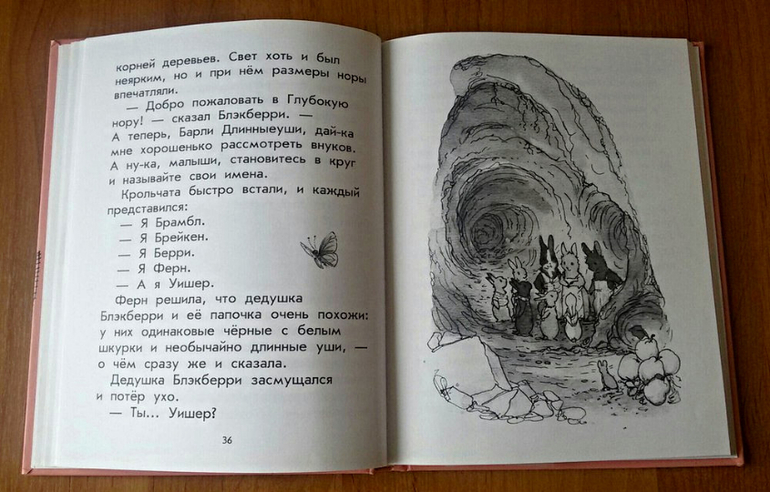 корней деревьев. Свет хоть и был
неярким, но и при нём размеры норы
впечатляли.
— Добро пожаловать в Глубокую
нору! — сказал Блэкберри. —
А теперь, Барли Длинныеуши, дай-ка
мне хорошенько рассмотреть внуков.
А ну-ка, малыши, становитесь в круг
и называйте свои имена.
Крольчата быстро встали, и каждый
представился:
— Я Брамбл.
— Я Брейкен.
— Я Берри.
— Я Ферн.
— А я Уишер.
Ферн решила, что дедушка
Блэкберри и её папочка очень похожи:
у них одинаковые чёрные с белым
шкурки и необычайно длинные уши, —
о чём сразу же и сказала.
Дедушка Блэкберри засмущался
и потёр ухо.
— Ты... Уишер?
36